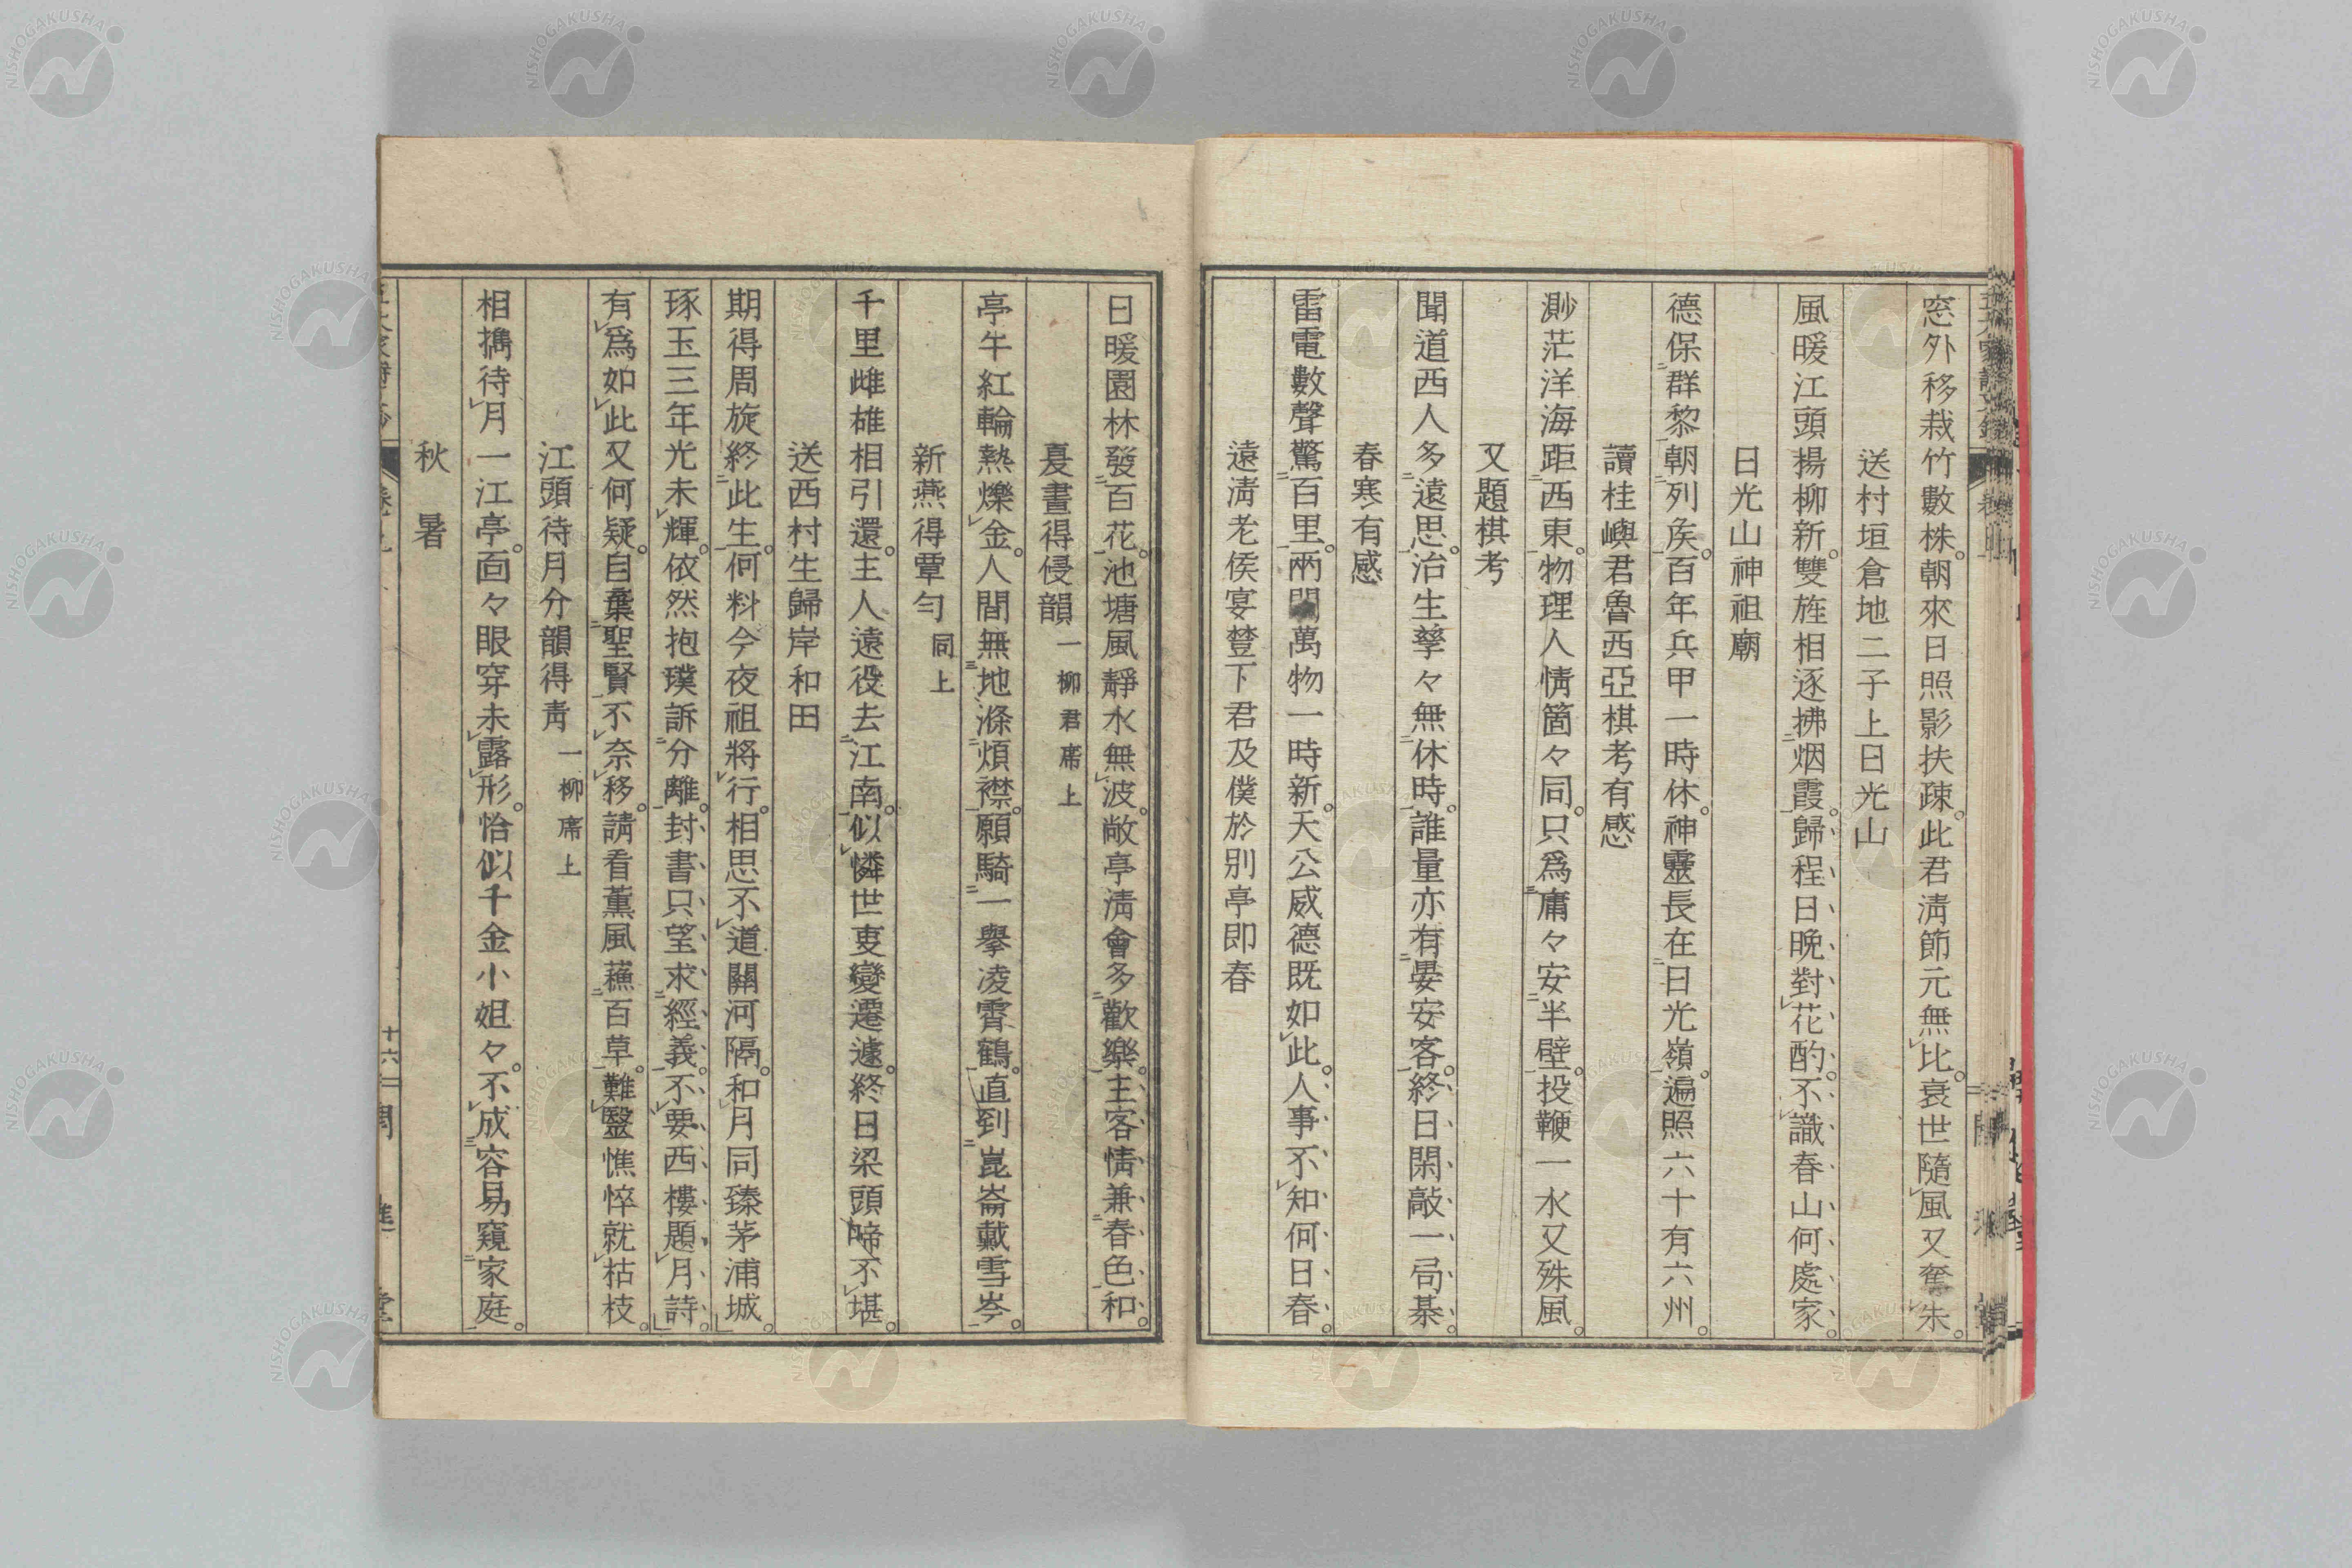 窓外移栽竹數株。朝來日照影扶疎。此君淸節元無レ比。衰世隨レ風又奪レ朱。
送村垣倉地二子上日光山
風暖江頭揚柳新。雙旌相逐拂二烟霞一。歸程日晩對レ花酌。不レ識春山何處家。
日光山神祖廟
德保二群黎一朝二列矦一。百年兵甲一時休。神靈長在二日光嶺一。遍照六十有六州。
讀桂嶼君魯西亞棋考有感
渺茫洋海距二西東一。物理人情箇々同。只爲三庸々安二半壁一。投鞭一水又殊風。
又題棋考
聞道西人多二遠思一。治生孳々無二休時一。誰量亦有二晏安客一。終日閑敲一局棊。
春寒有感
雷電數聲驚二百里一。兩開萬物一時新。天公威德既如レ此。人事不レ知何日春。
遠淸老侯宴轒下君及僕於別亭卽春
日暖園林發二百花一。池塘風靜水無レ波。敞亭淸會多二歡樂一。主客情兼二春色一和。
夏晝得侵韻 一柳君席上
亭午紅輪熱爍レ金。人間無三地滌二煩襟一。願騎二一擧凌霄鶴一。直到二崑崙戴雪岑一。
新燕得覃匀 同上
千里雌雄相引還。主人遠役去二江南一。似レ憐世叓變遷遽。終日梁頭啼不レ堪。
送西村生歸岸和田
期得周旋終二此生一。何料今夜祖將レ行。相思不レ道關河隔。和レ月同臻茅浦城。
琢玉三年光未レ輝。依然抱璞訴二分離一。封書只望求二經義一。不レ要西樓題レ月詩。
有レ爲如レ此又何疑。自棄二聖賢一不レ奈レ移。請看薰風蘓二百草一。難レ毉憔悴就レ枯枝。
江頭待月分韻得靑 一柳席上
相擕待レ月一江亭。面々眼穿未レ露レ形。恰似千金小姐々。不レ成三容易窺二家庭一。
秋暑
十六